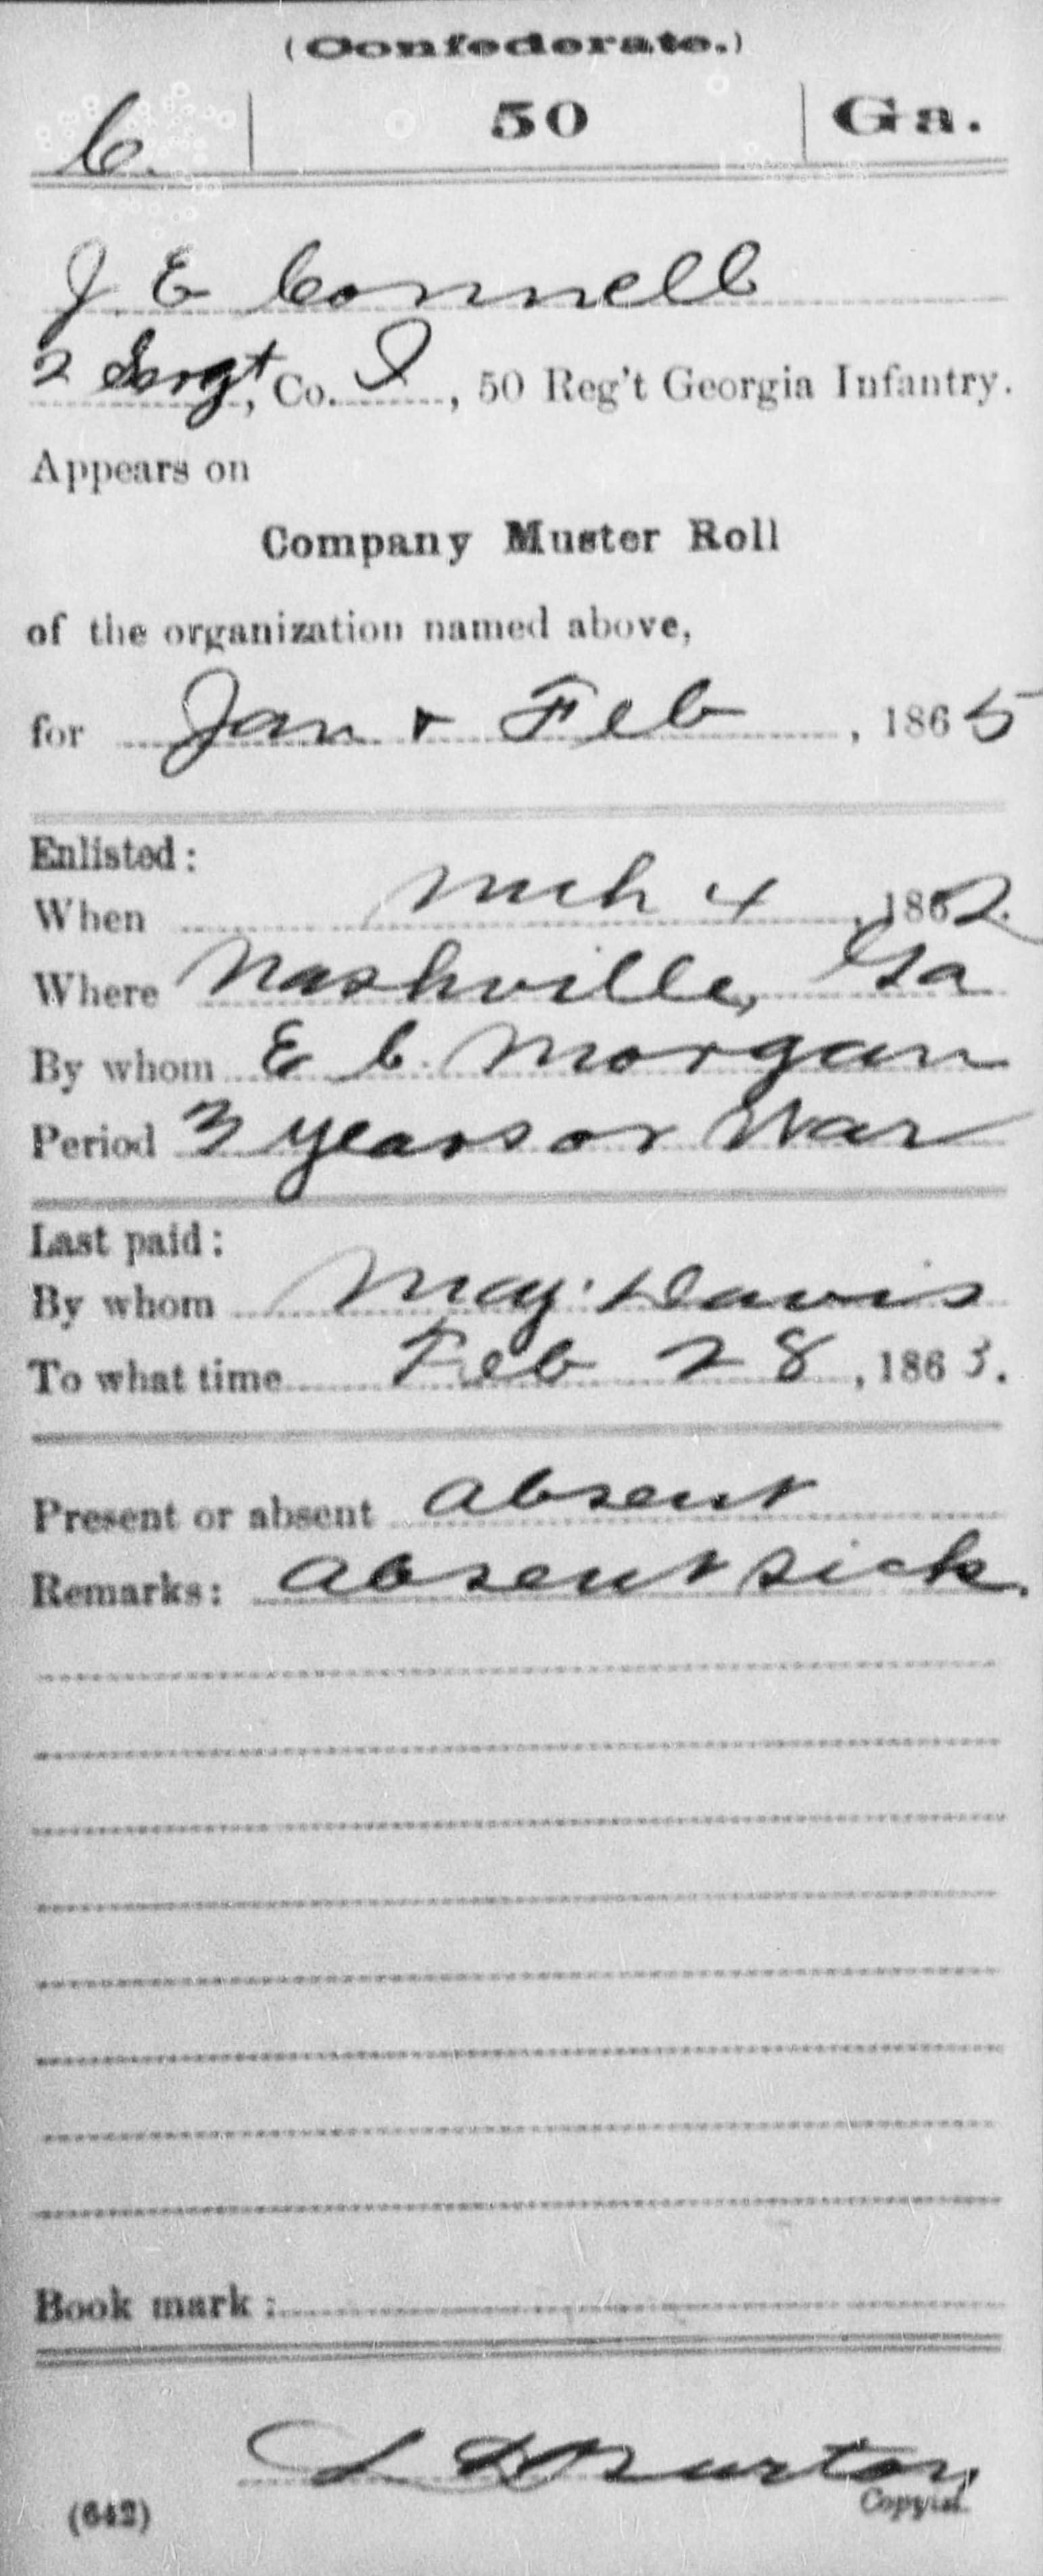 (Confederate.)
C. 50 Ga.
J. E Connell
2 Sergt, Co. I, 50 Reg't Georgia Infantry.
Appears on
Company Muster Roll
of the organization named above,
for Jan & Feb, 1865
Enlisted:
When Mch 4, 1862.
Where Nashville, Ga
By whom E C. Morgan
Period 3 years or War
Last paid:
By whom Maj. Davis
To what time Feb 28, 1863.
Present or absent absent
Remarks: absent sick.
Book mark:
Burton,
(642) Copyist.